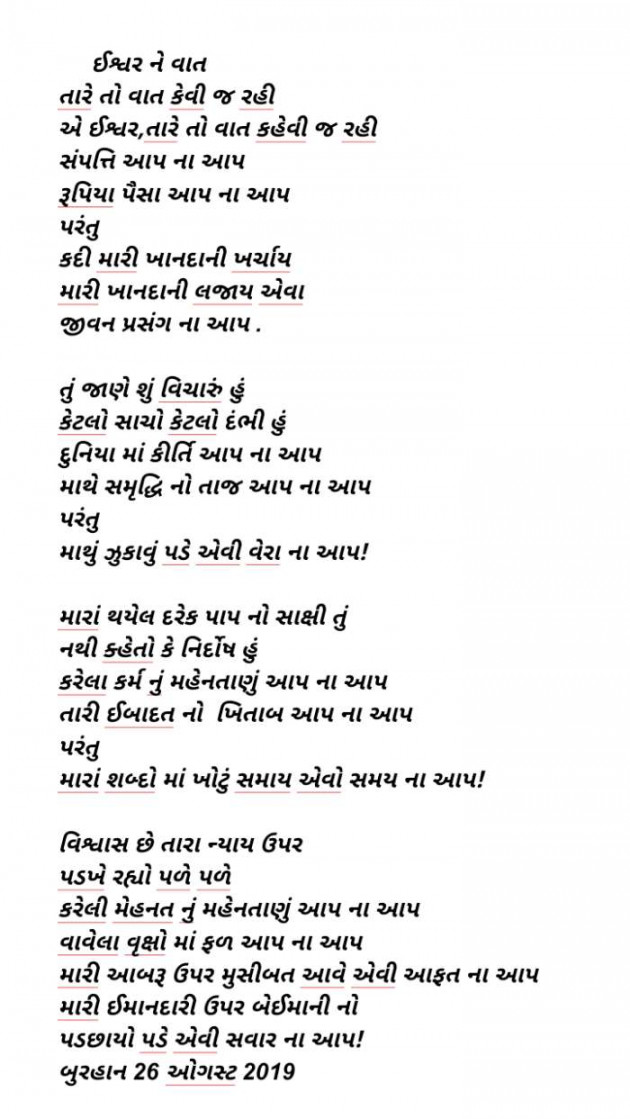 ઈશ્વર ને વાત
તારે તો વાત કેવી જ રહી
એ ઈશ્વર,તારે તો વાત કહેવી જ રહી
સંપત્તિ આપ ના આપ
રૂપિયા પૈસા આપ ના આપ
પરંતુ
કદી મારી ખાનદાની ખર્ચાય
મારી ખાનદાની લજાય એવા
જીવન પ્રસંગ ના આપ .
તું જાણે શું વિચારું હું
કેટલો સાચો કેટલો દંભી હું
દુનિયા માં કીર્તિ આપ ના આપ
માથે સમૃદ્ધિ નો તાજ આપ ના આપ
પરંતુ
માથું ઝુકાવું પડે એવી વેરા ના આપ!
મારાં થયેલ દરેક પાપ નો સાક્ષી તું
નથી ક્હેતો કે નિર્દોષ હું
કરેલા કર્મ નું મહેનતાણું આપ ના આપ
તારી ઈબાદત નો ખિતાબ આપ ના આપ
પરંતુ
મારાં શબ્દો માં ખોટું સમાય એવો સમય ના આપ!
વિશ્વાસ છે તારા ન્યાય ઉપર
પડખે રહ્યો પળે પળે
કરેલી મેહનત નું મહેનતાણું આપ ના આપ
વાવેલા વૃક્ષો માં ફળ આપ ના આપ
મારી આબરૂ ઉપર મુસીબત આવે એવી આફત ના આપ
મારી ઈમાનદારી ઉપર બેઈમાની નો
પડછાયો પડે એવી સવાર ના આપ!
બુરહાન 26 ઓગસ્ટ 2019